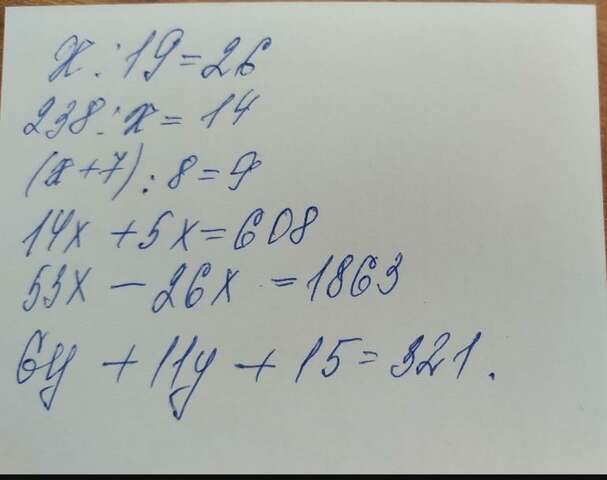 x : 19 = 26
238 : x = 14
(x + 7) : 8 = 9
14x + 5x = 608
53x - 26x = 1863
6y + 11y + 15 = 321.